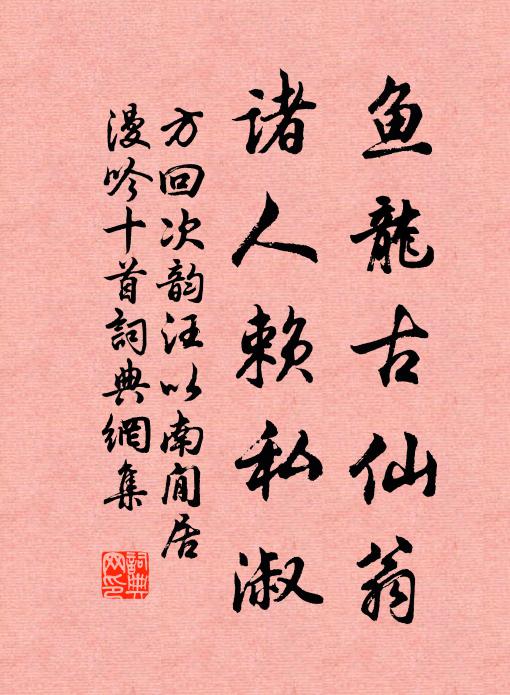 鱼龍古仙翁
诸人赖私淑
方回次韵汪以南闲居
漫吟十首詞典網集
詞典
网印